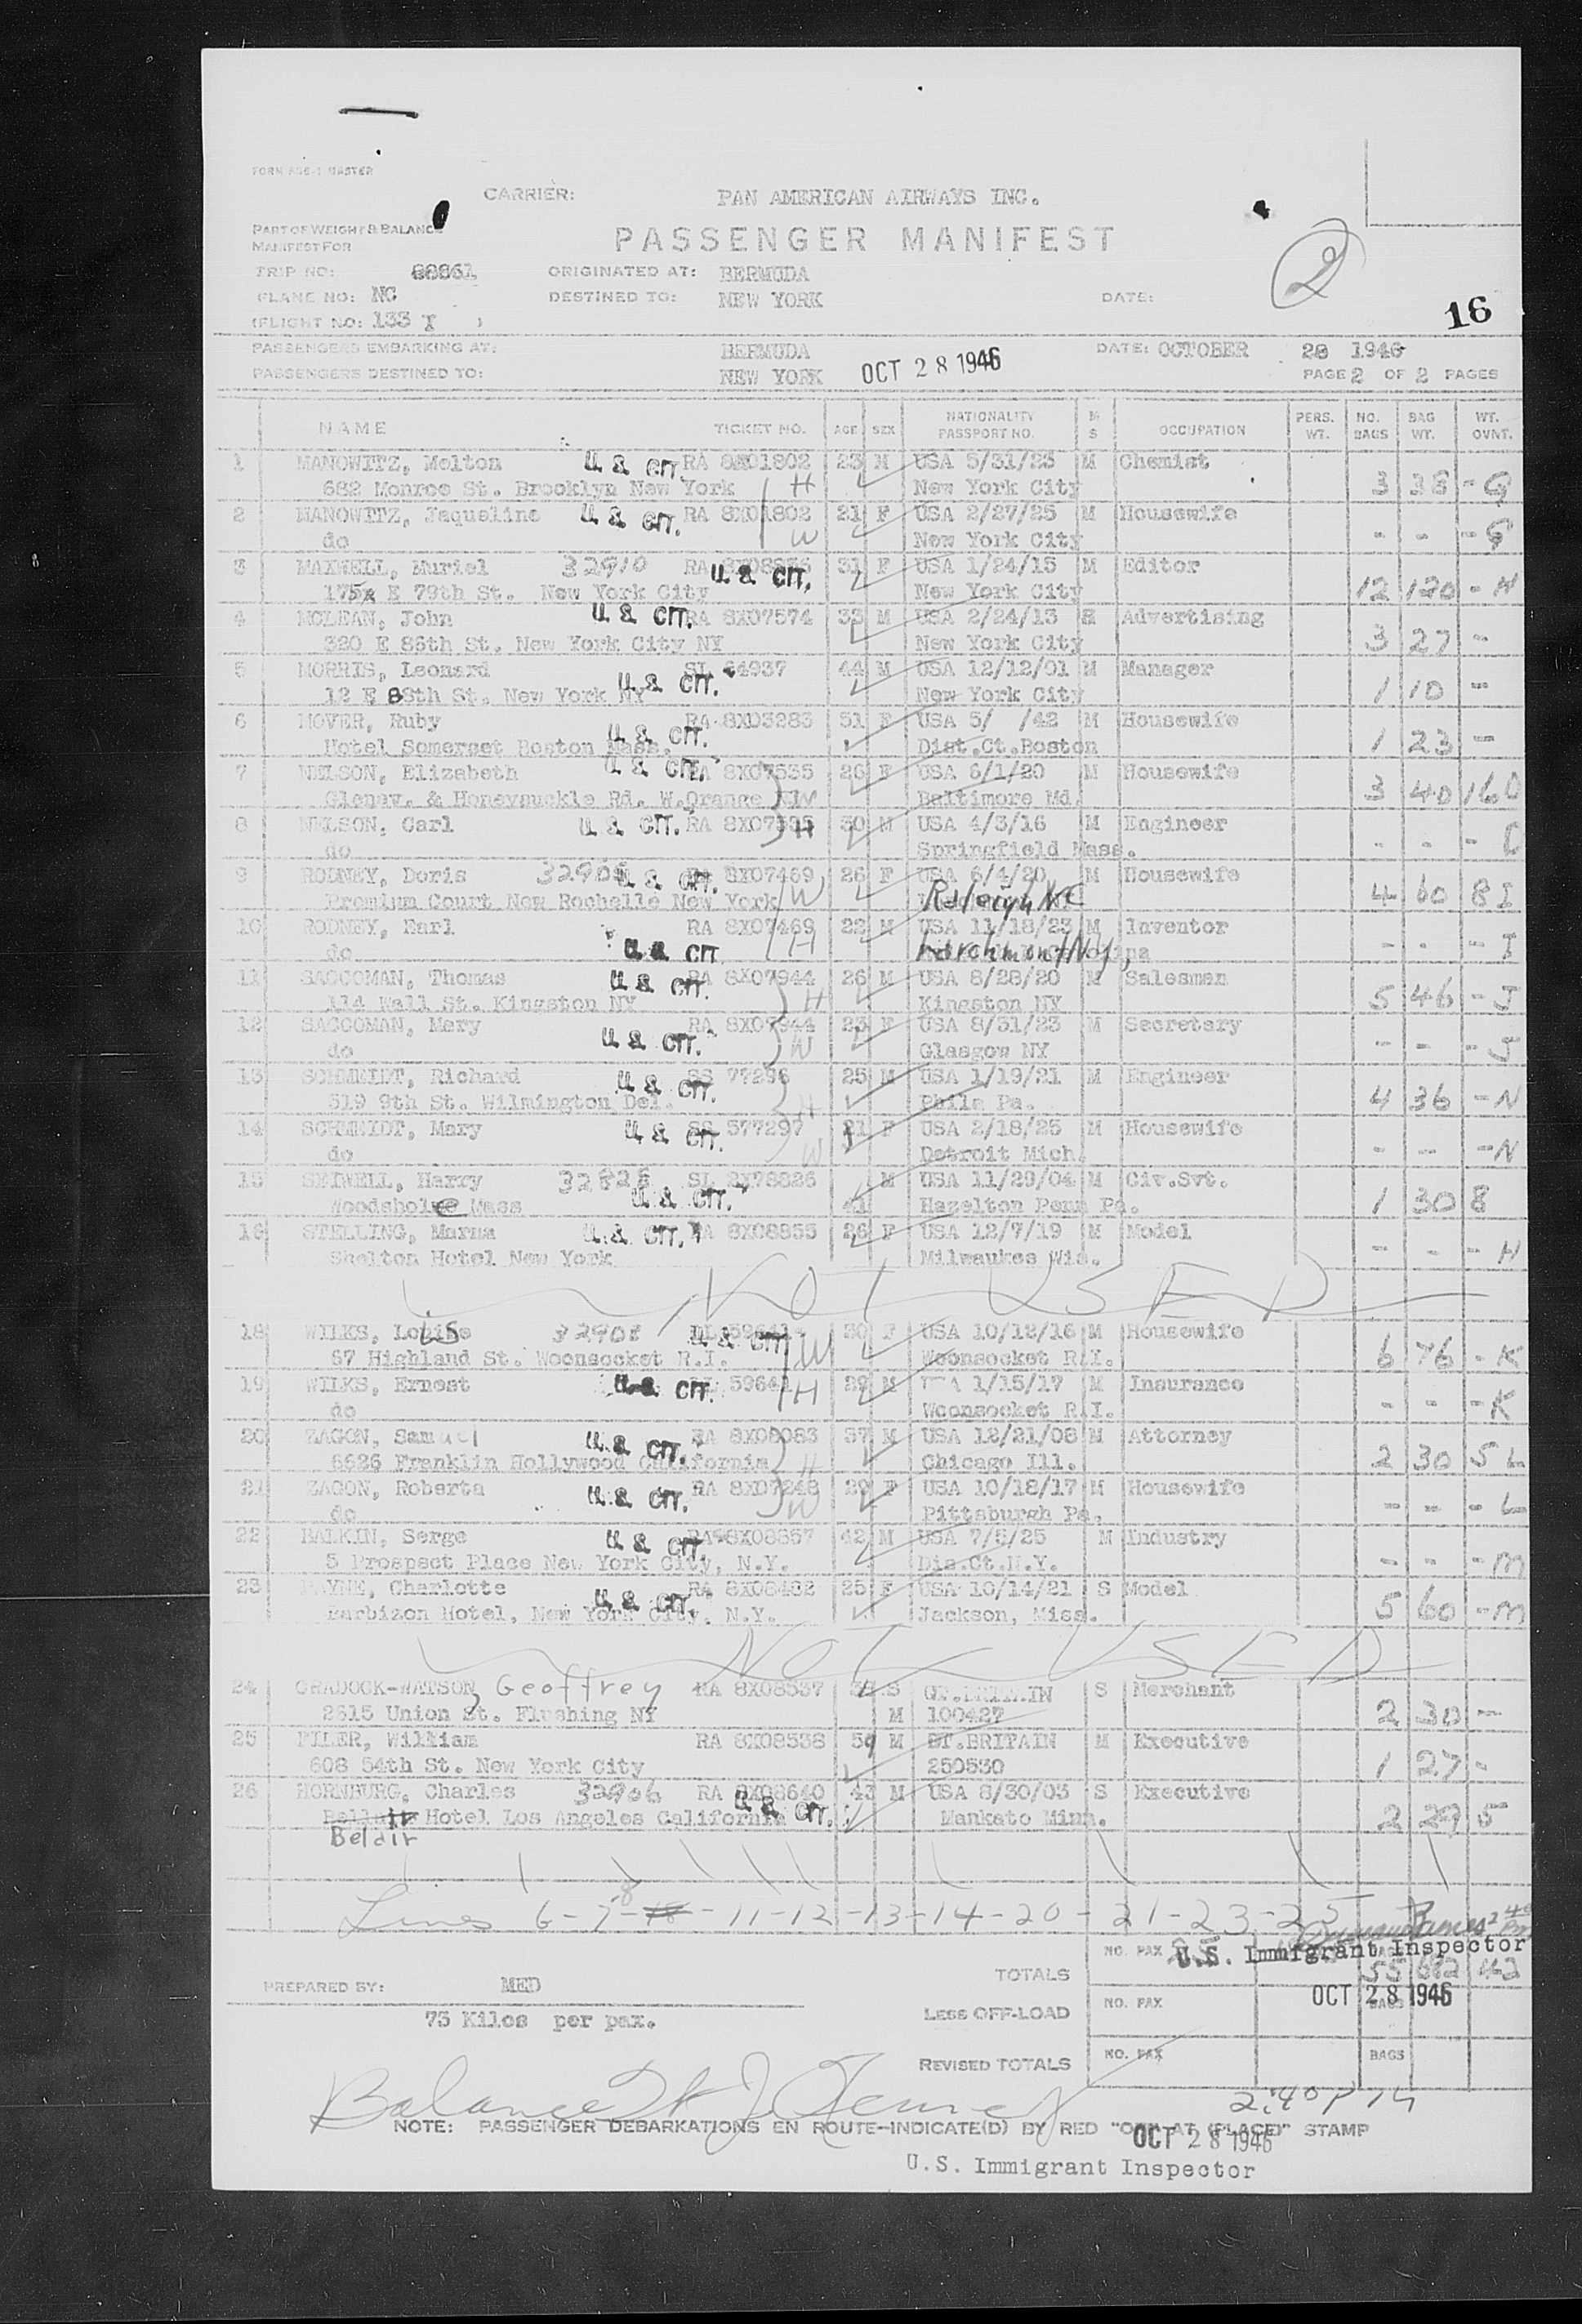 FORM ASE-1 MASTER
CARRIER: PAN AMERICAN AIRWAYS INC.
PART OF WEIGHT & BALANCE
MANIFEST FOR
PASSENGER MANIFEST
2
TRIP NO: 88861 ORIGINATED AT: BERMUDA
PLANE NO: NC DESTINED TO: NEW YORK DATE:
(FLIGHT NO: 133 )
16
PASSENGERS EMBARKING AT: BERMUDA DATE: OCTOBER 28 1946
PASSENGERS DESTINED TO: NEW YORK OCT 28 1946 PAGE 2 OF 2 PAGES
NAME TICKET NO. AGE SEX NATIONALITY PASSPORT NO. M S OCCUPATION PERS. WT. NO. BAGS BAG WT. WT. OVNT.
1 MANOWITZ, Melton U.S. CIT. RA 8X01802 23 M USA 5/31/23 M Chemist
682 Monroe St. Brooklyn New York H New York City 3 38 - G
2 MANOWITZ, Jaqueline U.S. CIT. RA 8X01802 21 F USA 2/27/25 M Housewife
do W New York City - - - G
3 MAXWELL, Muriel 32910 RA U.S. CIT. 31 F USA 1/24/15 M Editor
E 79th St. New York City New York City 12 120 - N
4 MCLEAN, John U.S. CIT. RA 8X07574 33 M USA 2/24/13 Advertising
320 E 86th St. New York City NY New York City 3 27 -
5 MORRIS, Leonard U.S. CIT. SL 44 M USA 12/12/01 M Manager
12 E 88th St. New York NY New York City 1 10 -
6 MOVER, Ruby U.S. CIT. RA 8X03283 51 F USA 5/ /42 M Housewife
Hotel Somerset Boston Mass. Dist.Ct.Boston 1 23 -
7 NELSON, Elizabeth U.S. CIT. RA 8X07535 26 F USA 6/1/20 M Housewife
Glenav. & Honeysuckle Rd. W.Orange W Baltimore Md. 3 40 16
8 NELSON, Carl U.S. CIT. RA H 30 M USA 4/3/16 M Engineer
do Springfield Mass. - - -
9 RODNEY, Doris U.S. CIT. 8X07469 26 F USA 6/4/20 M Housewife
Premium Court New Rochelle New York W Raleigh NC 4 60 8 I
10 RODNEY, Earl RA 8X07469 22 M USA 11/18/23 M Inventor
do U.S. CIT. H - - - I
11 SACCOMAN, Thomas U.S. CIT. RA 8X07944 26 M USA 8/28/20 M Salesman
114 Wall St. Kingston NY H Kingston NY 5 46 - J
12 SACCOMAN, Mary U.S. CIT. RA 8X07944 23 F USA 8/31/23 M Secretary
do W Glasgow NY - - - J
13 SCHMEIDT, Richard U.S. CIT. SS 77296 25 M USA 1/19/21 M Engineer
519 9th St. Wilmington Del. H Phila Pa. 4 36 - N
14 SCHMEIDT, Mary U.S. CIT. SS 577297 21 F USA 2/18/25 M Housewife
do W Detroit Mich. - - - N
15 SEDWELL, Harry 32828 SL 8X78826 M USA 11/29/04 M Civ.Svt.
Woodshole Mass U.S. CIT. 41 Hazelton Penn Pa. 1 30 8
16 STELLING, Marna U.S. CIT. RA 8X08855 26 F USA 12/7/19 M Model
Shelton Hotel New York Milwaukee Wis. - - - H
NOT USED
18 WILKS, 32908 U.S. CIT. 30 F USA 10/12/16 M Housewife
67 Highland St. Woonsocket R.I. W Woonsocket R.I. 6 76 - K
19 WILKS, Ernest U.S. CIT. 59641 29 M USA 1/15/17 M Insurance
do H Woonsocket R.I. - - - K
20 ZAGON, Samuel U.S. CIT. RA 8X08083 37 M USA 12/21/08 M Attorney
6626 Franklin Hollywood California H Chicago Ill. 2 30 5 L
21 ZAGON, Roberta U.S. CIT. RA 8X07248 29 F USA 10/18/17 M Housewife
do W Pittsburgh Pa. - - - L
22 BALKIN, Serge U.S. CIT. RA 8X08357 42 M USA 7/5/25 M Industry
5 Prospect Place New York City, N.Y. Dis.Ct.N.Y. - - - M
23 PAYNE, Charlotte U.S. CIT. RA 8X08402 25 F USA 10/14/21 S Model
Barbizon Hotel, New York City, N.Y. Jackson, Miss. 5 60 - M
NOT USED
24 CRADOCK-WATSON, Geoffrey RA 8X08537 S GT.BRITAIN S Merchant
2615 Union St. Flushing NY M 100427 2 30 -
25 PILER, William RA 8X08538 59 M GT.BRITAIN M Executive
608 54th St. New York City 250530 1 27 -
26 HORNBURG, Charles 32906 RA 8X08640 43 M USA 8/30/03 S Executive
Hotel Los Angeles California U.S. CIT. Mankato Minn. 2 29 5
Belair
Lines 6-7-8-11-12-13-14-20-21-23-25
NO. PAX U.S. Immigrant Inspector
TOTALS 55 682 42
PREPARED BY: MED
NO. PAX OCT 28 1946 BAGS
75 Kilos per pax. LESS OFF-LOAD
REVISED TOTALS NO. PAX BAGS
2:40 PM
NOTE: PASSENGER DEBARKATIONS EN ROUTE—INDICATE(D) BY RED "OFF AT (PLACE)" STAMP
OCT 28 1946
U.S. Immigrant Inspector